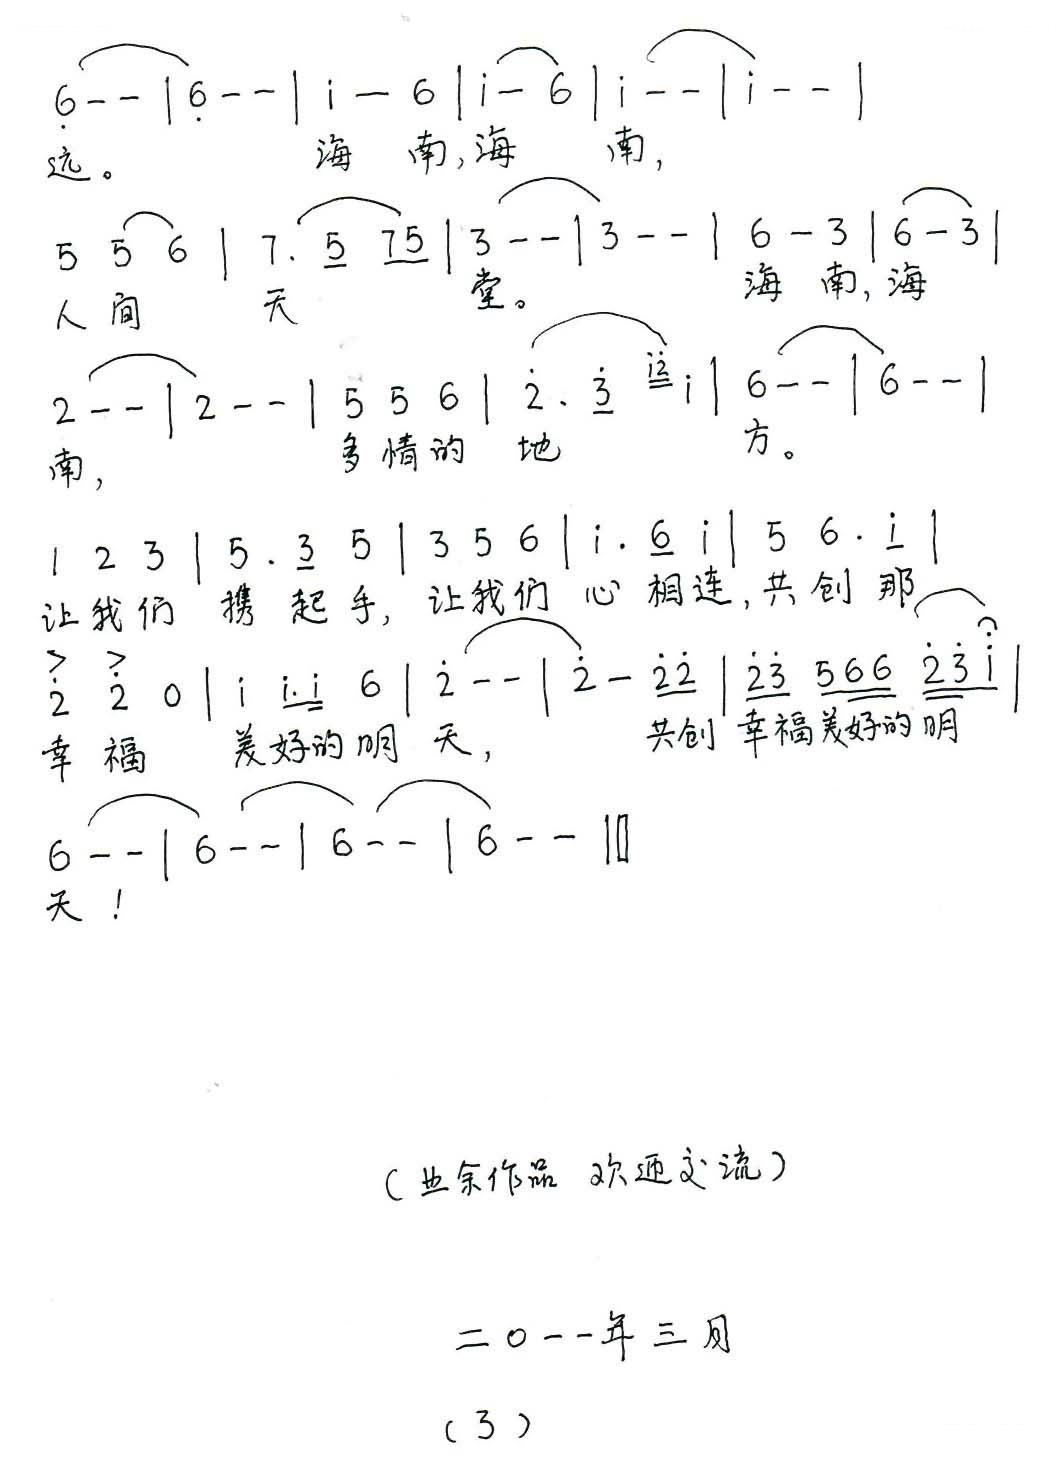 6̣ - - | 6̣ - - | i̇ - 6 | i̇ - 6 | i̇ - - | i̇ - - |
远。 海 南,海 南,
5 5 6 | 7. 5 75 | 3 - - | 3 - - | 6 - 3 | 6 - 3 |
人 间 天 堂。 海 南,海
2 - - | 2 - - | 5 5 6 | 2̇. 3̇ i̇2̇ i̇ | 6 - - | 6 - - |
南, 多 情 的 地 方。
1 2 3 | 5. 3 5 | 3 5 6 | i̇. 6 i̇ | 5 6. i̇ |
让我们 携 起 手, 让我们 心 相连,共 创 那
> >
2̇ 2̇ 0 | i̇ i̇.i̇ 6 | 2̇ - - | 2̇ - 2̇2̇ | 2̇3̇ 566 2̇3̇i̇ |
幸 福 美好的明 天, 共创 幸福美好的 明
6 - - | 6 - - | 6 - - | 6 - - ‖
天!
(业余作品 欢迎交流)
二〇一一年三月
(3)